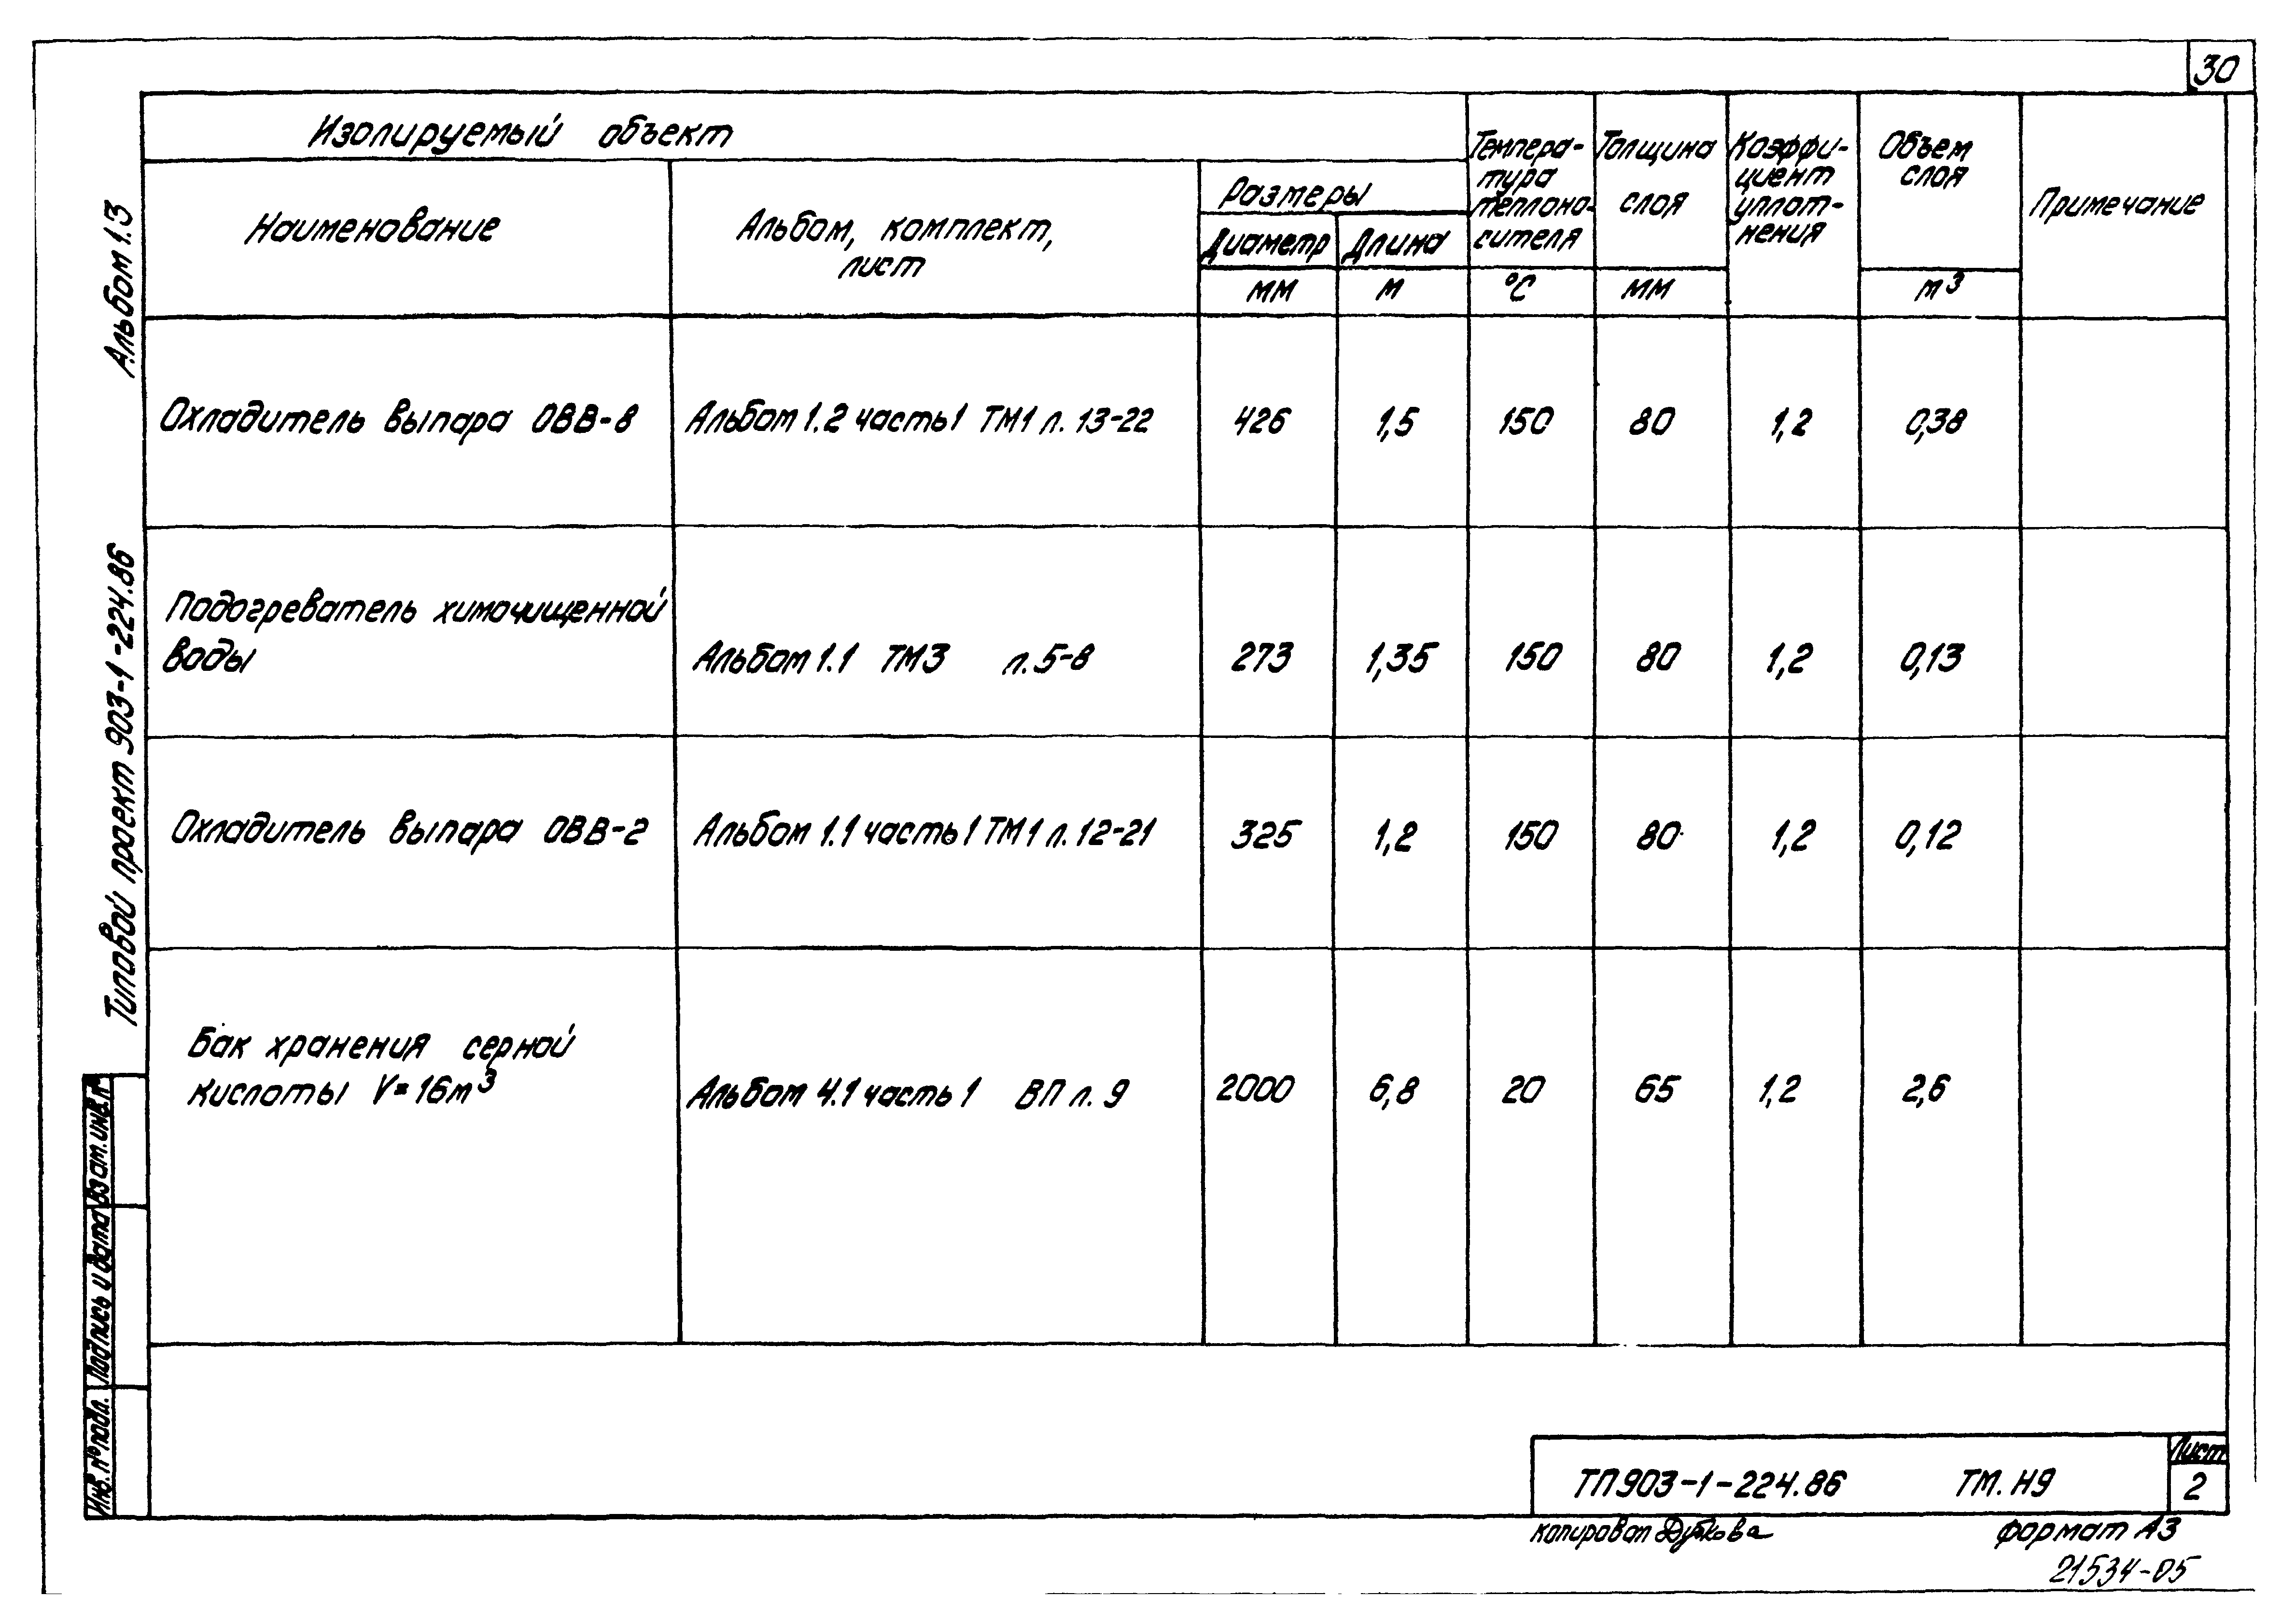 30
Изолируемый объект
Наименование
Альбом, комплект,
лист
Размеры
Диаметр
Длина
мм
м
Темпера-
тура
теплоно-
сителя
°С
Толщина
слоя
мм
Коэффи-
циент
уплот-
нения
Объем
слоя
м³
Примечание
Охладитель выпара ОВВ-8 Альбом 1.2 часть 1 ТМ1 л. 13-22 426 1,5 150 80 1,2 0,38
Подогреватель химочищенной
воды Альбом 1.1 ТМ3 л. 5-8 273 1,35 150 80 1,2 0,13
Охладитель выпара ОВВ-2 Альбом 1.1 часть 1 ТМ1 л. 12-21 325 1,2 150 80 1,2 0,12
Бак хранения серной
кислоты V=16м³ Альбом 4.1 часть 1 ВП л. 9 2000 6,8 20 65 1,2 2,6
Альбом 1.3
Типовой проект 903-1-224.86
Взам.инв.№
Подпись и дата
Инв.№ подл.
ТП 903-1-224.86 ТМ.Н9
Лист
2
копировал Дубкова
формат А3
21534-05